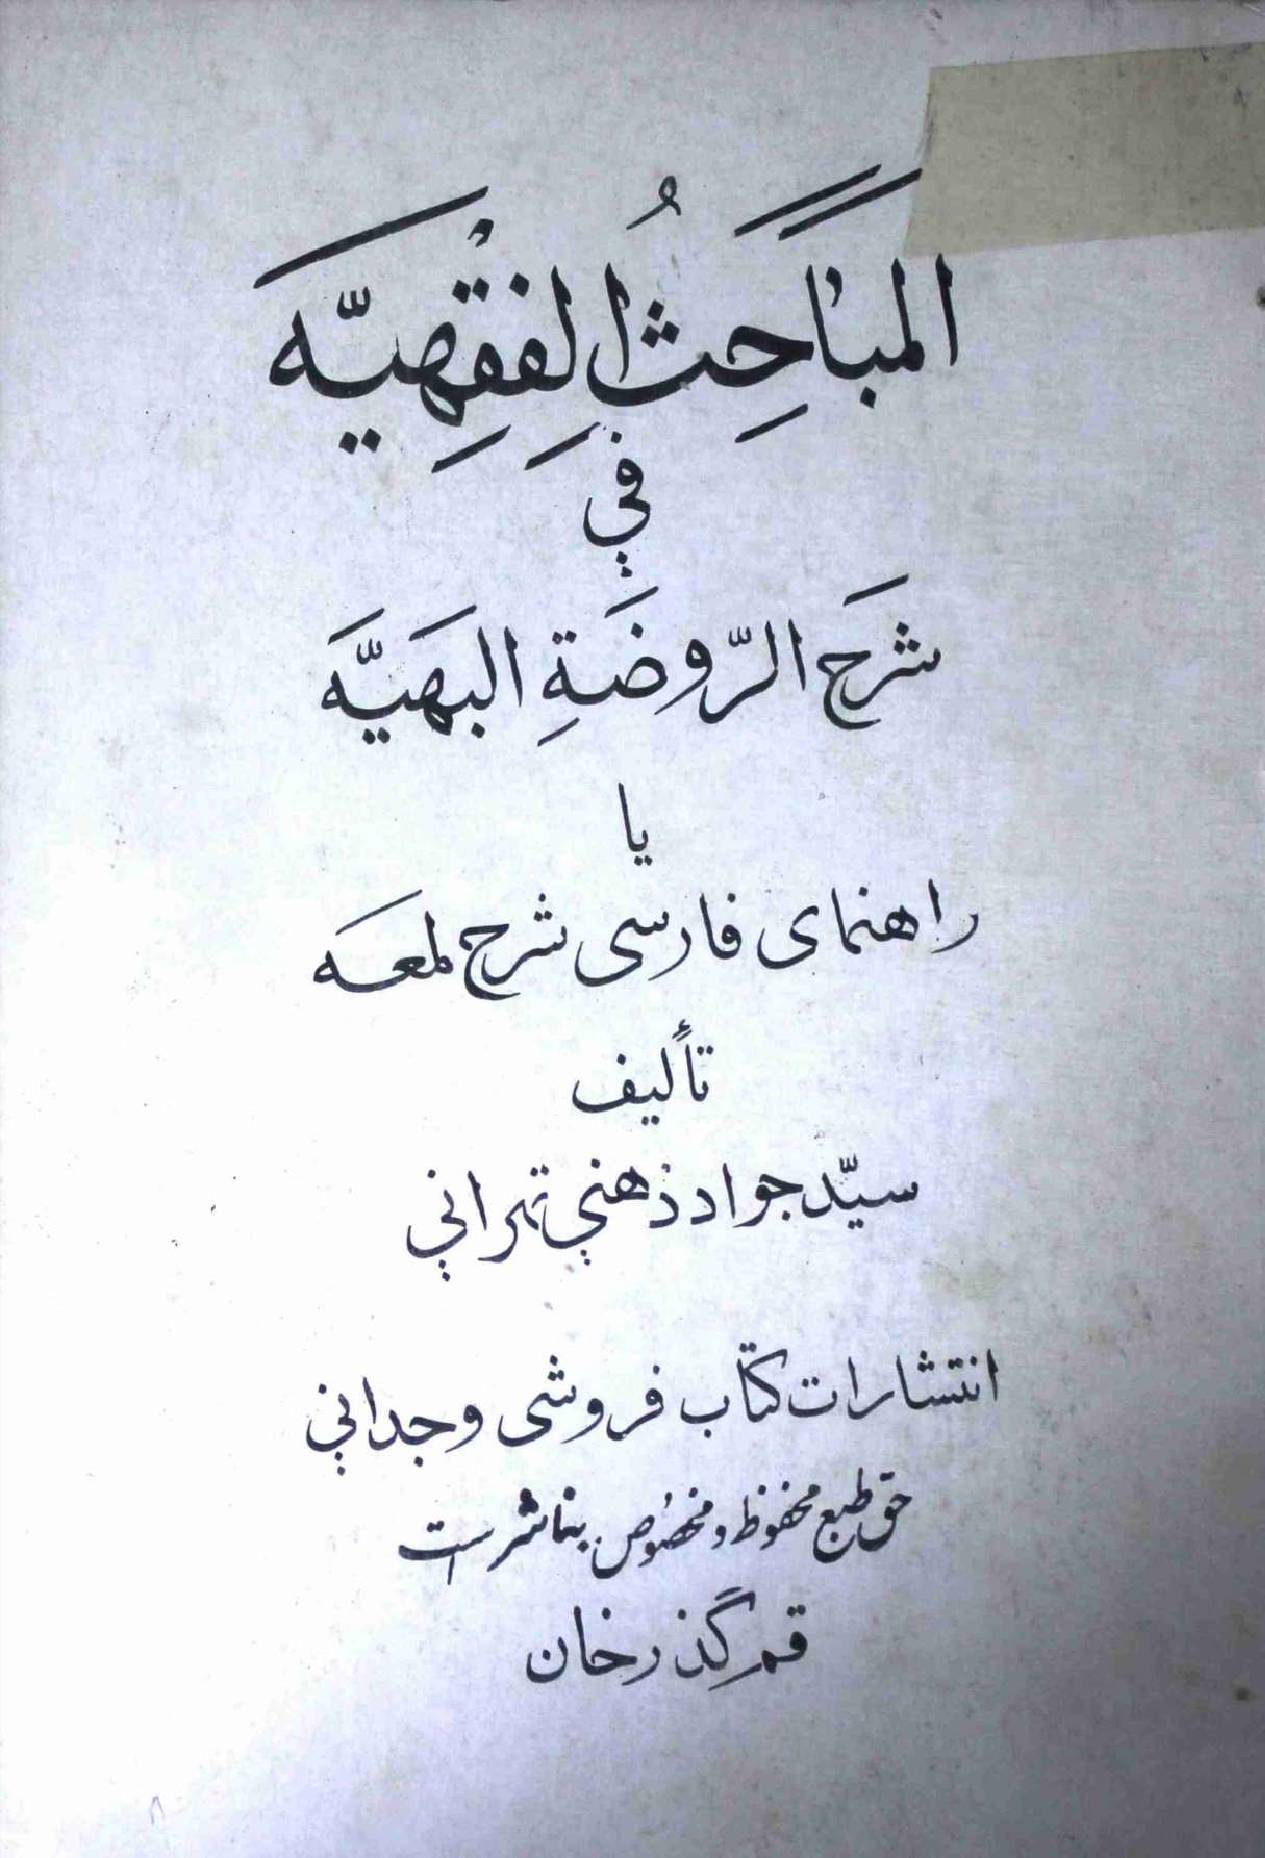 المَبَاحِثُ الفِقْهِيَّه
في
شَرح الرّوضَةِ البَهيَّه
یا
راهنمای فارسی شرح لمعه
تألیف
سیّد جواد ذهني تهراني
انتشارات کتاب فروشی وجداني
حق طبع محفوظ و مخصوص بناشر است
قم گذرخان